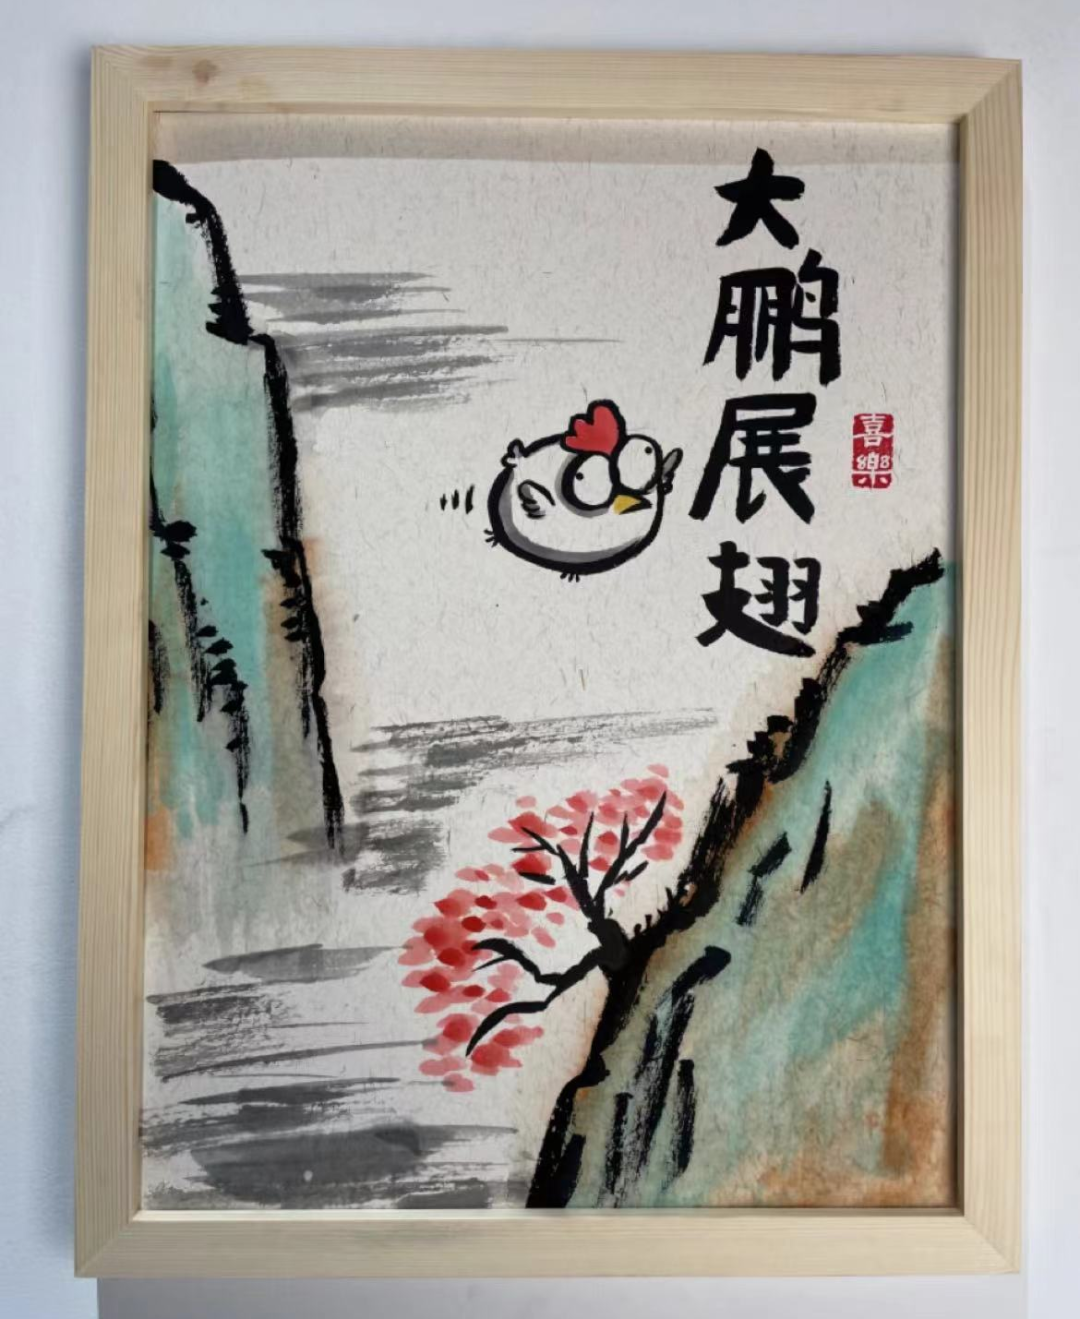 大鹏展翅
喜樂